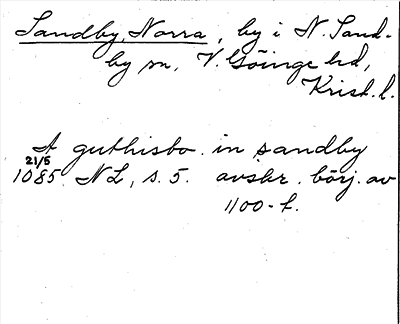 Sandby, Norra, by i N. Sand-
by sn, V. Göinge hd,
Krist. l.
A guthisbo. in sandby
21/5
1085. NL, s. 5. avskr. börj. av
1100-t.